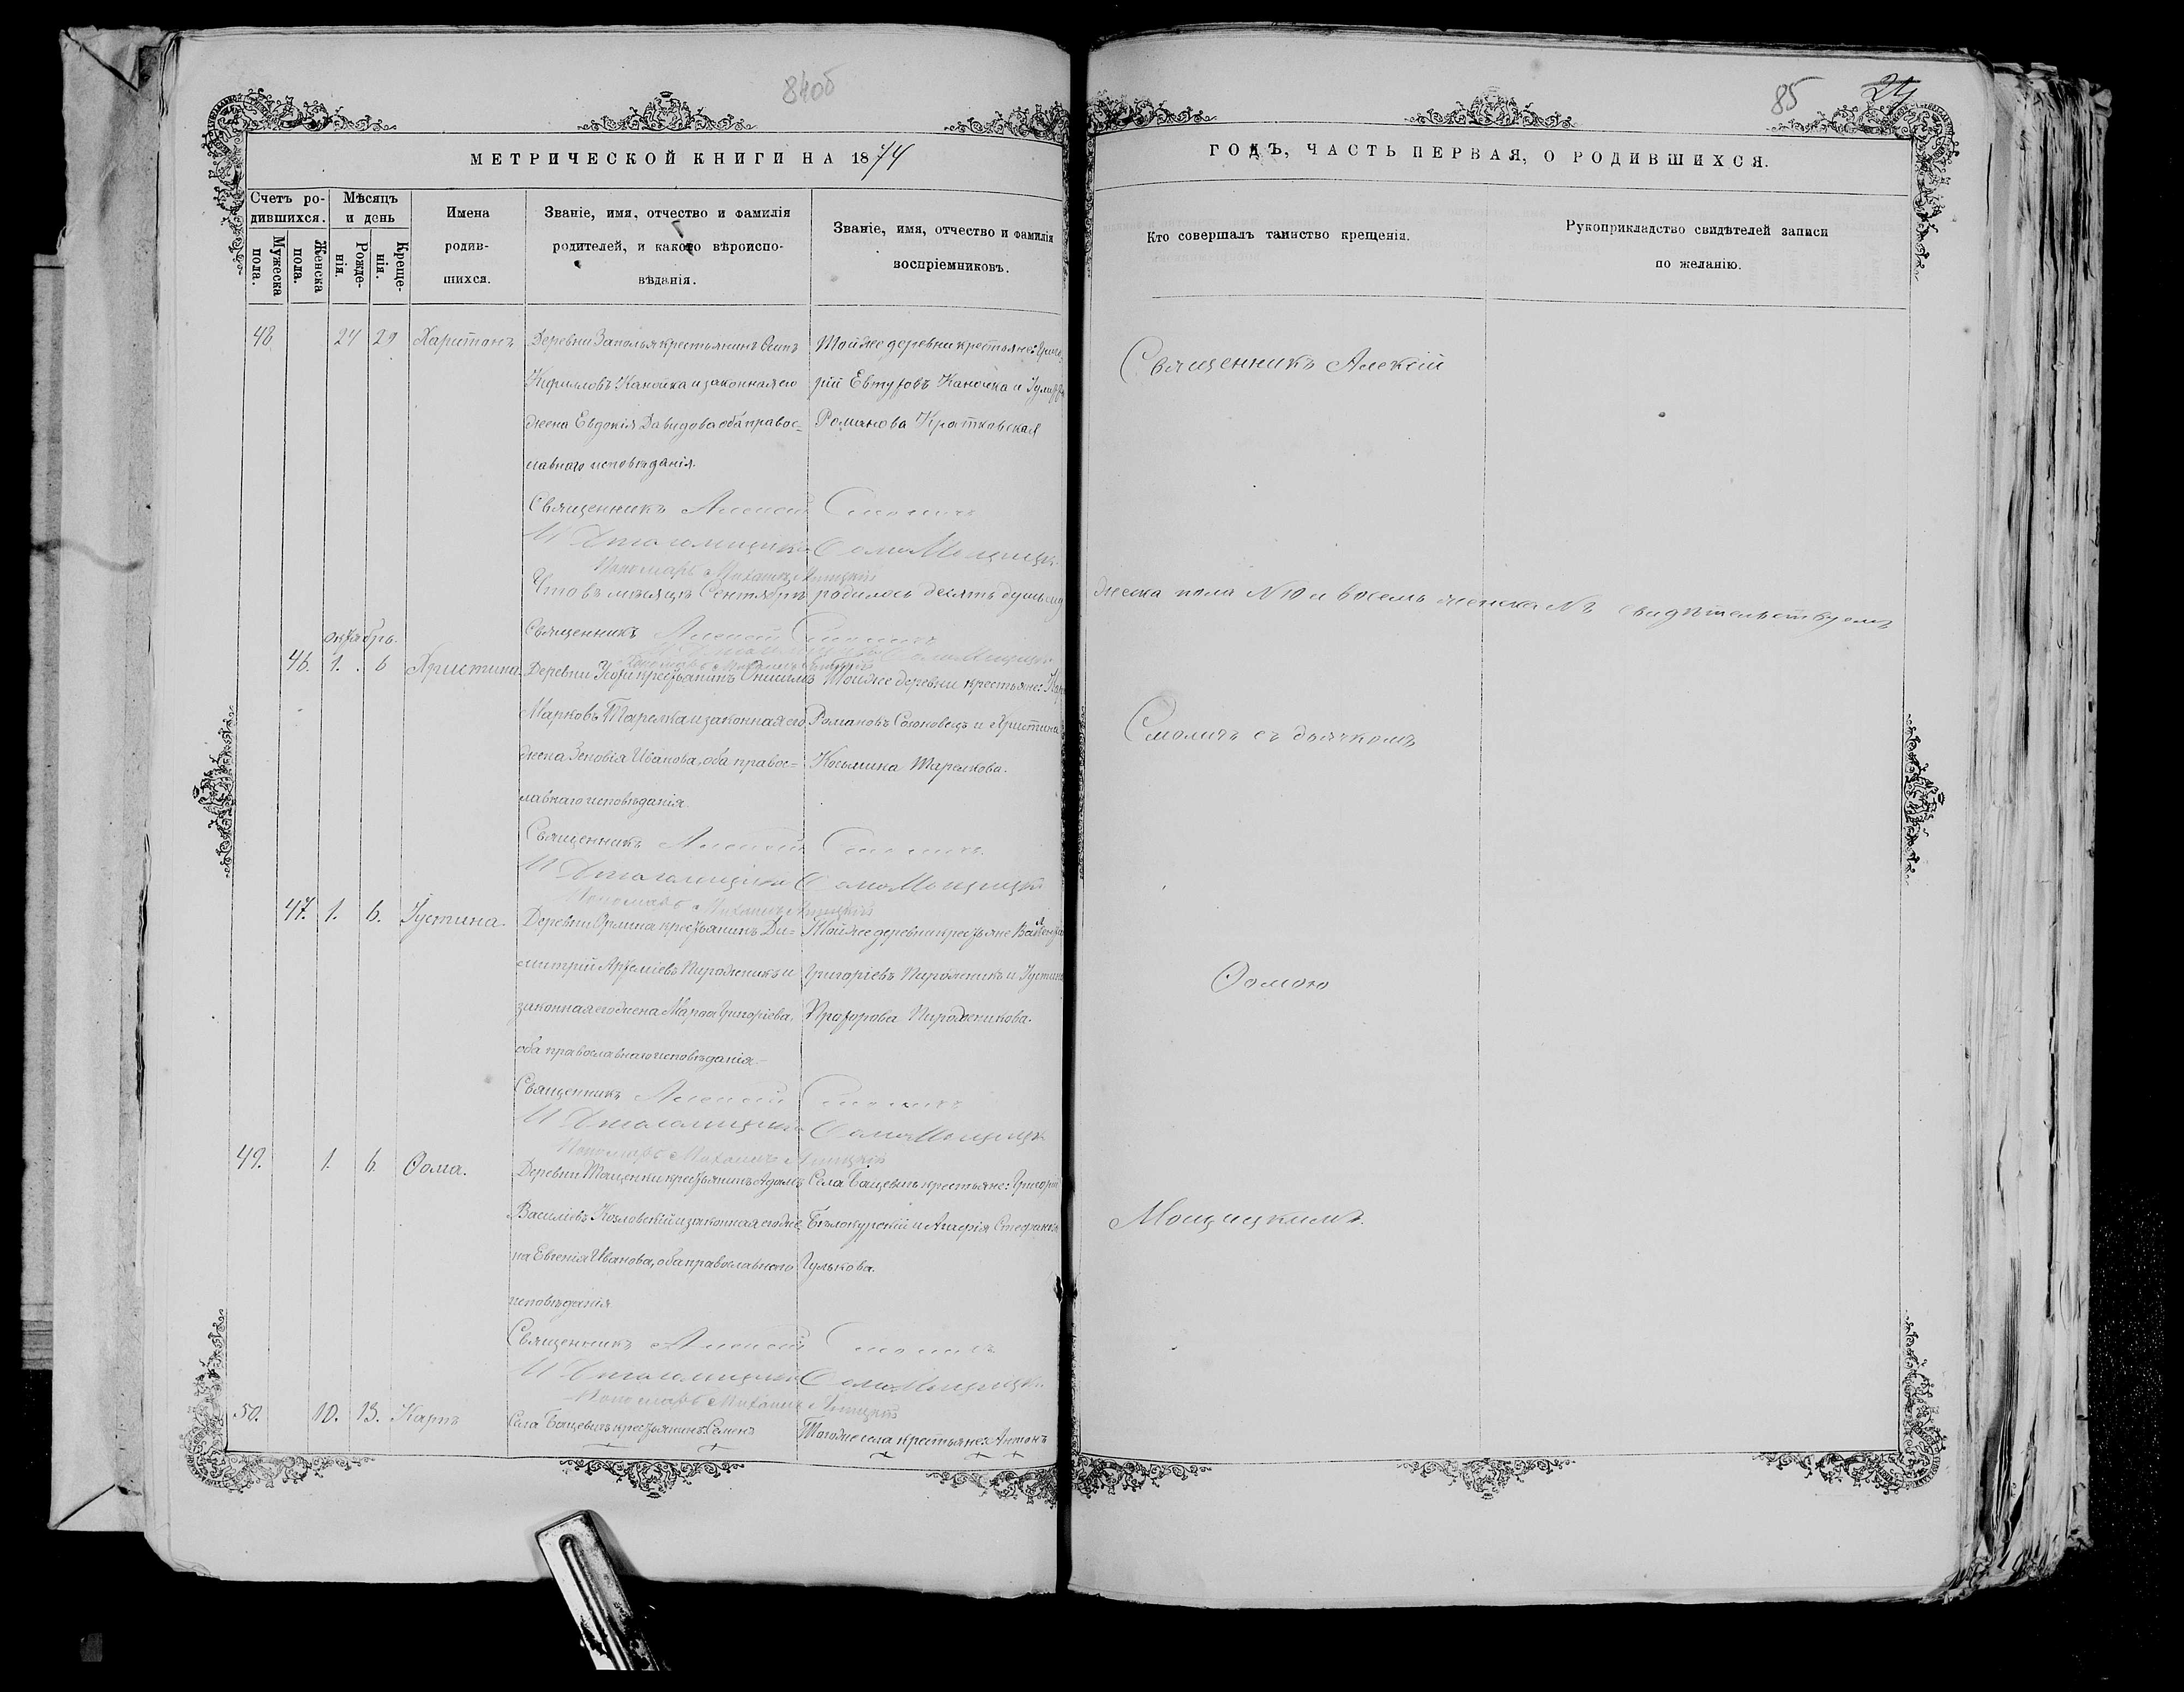 84об
85
24
МЕТРИЧЕСКОЙ КНИГИ НА 1874
ГОДЪ, ЧАСТЬ ПЕРВАЯ, О РОДИВШИХСЯ.
Счетъ ро-
дившихся.
Мужеска пола.
Женска пола.
Мѣсяцъ
и день
Рожде-
нія.
Креще-
нія.
Имена
родив-
шихся.
Званіе, имя, отчество и фамилія
родителей, и какого вѣроиспо-
вѣданія.
Званіе, имя, отчество и фамилія
воспріемниковъ.
Кто совершалъ таинство крещенія.
Рукоприкладство свидѣтелей записи
по желанію.
48 24 29 Харитонъ
Деревни Заполья крестьянинъ Осипъ
Кириловъ Канойка и законная его
жена Евдокія Давидова оба правос-
лавнаго исповѣданія.
Тойже деревни крестьяне: Григо
рій Евтуховъ Канойка и
Романова Кратковская
Священникъ Алексій Смоличъ
Пономарь Михаилъ
Что въ мѣсяцѣ Сентябрѣ родилось десять душъ му
жеска пола №10 и восемь женска №8 свидѣтельствуемъ
Священникъ Алексій Смоличъ
октябрь.
46. 1. 6 Христина
Деревни Усохи крестьянинъ Онисимъ
Марковъ Тарелка и законная его
жена Зеновія Иванова, оба правос-
лавнаго исповѣданія
Тойже деревни крестьяне:
Романовъ Соконовецъ и Христина
Косьмина Тарелкова.
Священникъ Алексій Смоличъ
Пономарь Михаилъ
47. 1. 6. Іустина.
Деревни крестьянинъ Ди-
митрій Артеміевъ Пирожникъ и
законная его жена Марѳа Григоріева,
оба православнаго исповѣданія.
Тойже деревни крестьяне
Григоріевъ Пирожникъ и Іустина
Прохорова Пирожникова.
Священникъ Алексій Смоличъ
Пономарь Михаилъ
49. 1. 6. Ѳома.
Деревни Тащенки крестьянинъ Адамъ
Василіевъ Козловскій и законная его же
на Евгенія Иванова, оба православнаго
исповѣданія
Села Бацевичъ крестьяне: Григорій
Бѣлокурскій и Агафія Стефанова
Гулькова.
Священникъ Алексій Смоличъ
Пономарь Михаилъ
50. 10. 13. Карпъ
Села Бацевичъ крестьянинъ Семенъ
Тогоже села крестьяне: Антонъ
Священникъ Алексій
Смоличъ съ дьячкомъ
Ѳомою
Мощицкимъ.